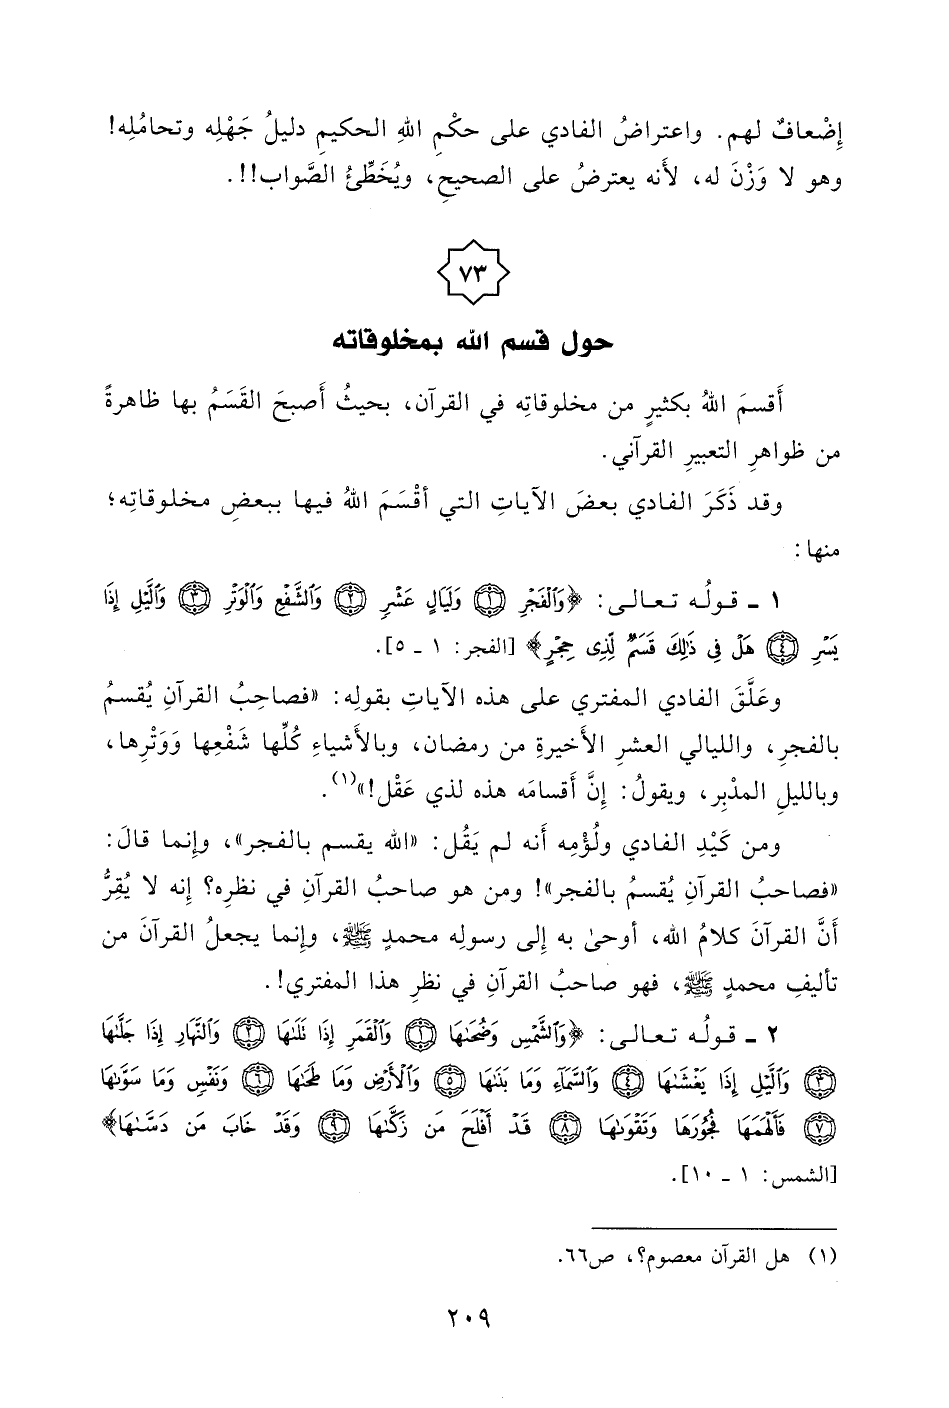 إِضْعافٌ لهم. واعتراضُ الفادي على حكْمِ اللهِ الحكيمِ دليلُ جَهْلِه وتحامُلِه!
وهو لا وَزْنَ له، لأنه يعترضُ على الصحيحِ، ويُخَطِّئُ الصَّواب!!.
٧٣
حول قسم الله بمخلوقاته
أَقسمَ اللهُ بكثيرٍ من مخلوقاتِه في القرآن، بحيثُ أَصبحَ القَسَمُ بها ظاهرةً
من ظواهرِ التعبيرِ القرآني.
وقد ذَكَرَ الفادي بعضَ الآياتِ التي أقْسَمَ اللهُ فيها ببعضِ مخلوقاتِه؛
منها:
١ ـ قولُه تعالى: ﴿وَٱلْفَجْرِ ۝١ وَلَيَالٍ عَشْرٍ ۝٢ وَٱلشَّفْعِ وَٱلْوَتْرِ ۝٣ وَٱلَّيْلِ إِذَا
يَسْرِ ۝٤ هَلْ فِى ذَٰلِكَ قَسَمٌ لِّذِى حِجْرٍ﴾ [الفجر: ١ ـ ٥].
وعَلَّقَ الفادي المفتري على هذه الآياتِ بقولِه: «فصاحِبُ القرآنِ يُقسمُ
بالفجرِ، والليالي العشرِ الأَخيرةِ من رمضان، وبالأَشياءِ كُلِّها شَفْعِها وَوَتْرِها،
وبالليلِ المدْبِر، ويقولُ: إِنَّ أَقسامَه هذه لذي عَقْل!»(١).
ومن كَيْدِ الفادي ولُؤْمِه أنه لم يَقُل: «الله يقسم بالفجر»، وإِنما قالَ:
«فصاحبُ القرآنِ يُقسمُ بالفجر»! ومن هو صاحبُ القرآنِ في نظرِه؟ إِنه لا يُقِرُّ
أَنَّ القرآنَ كلامُ الله، أوحىٰ به إِلى رسولِه محمدٍ ﷺ، وإِنما يجعلُ القرآنَ من
تأليفِ محمدٍ ﷺ، فهو صاحبُ القرآنِ في نظرِ هذا المفتري!.
٢ ـ قولُه تعالى: ﴿وَٱلشَّمْسِ وَضُحَىٰهَا ۝١ وَٱلْقَمَرِ إِذَا تَلَىٰهَا ۝٢ وَٱلنَّهَارِ إِذَا جَلَّىٰهَا
۝٣ وَٱلَّيْلِ إِذَا يَغْشَىٰهَا ۝٤ وَٱلسَّمَآءِ وَمَا بَنَىٰهَا ۝٥ وَٱلْأَرْضِ وَمَا طَحَىٰهَا ۝٦ وَنَفْسٍ وَمَا سَوَّىٰهَا
۝٧ فَأَلْهَمَهَا فُجُورَهَا وَتَقْوَىٰهَا ۝٨ قَدْ أَفْلَحَ مَن زَكَّىٰهَا ۝٩ وَقَدْ خَابَ مَن دَسَّىٰهَا﴾
[الشمس: ١ ـ ١٠].
(١) هل القرآن معصوم؟، ص٦٦.
٢٠٩